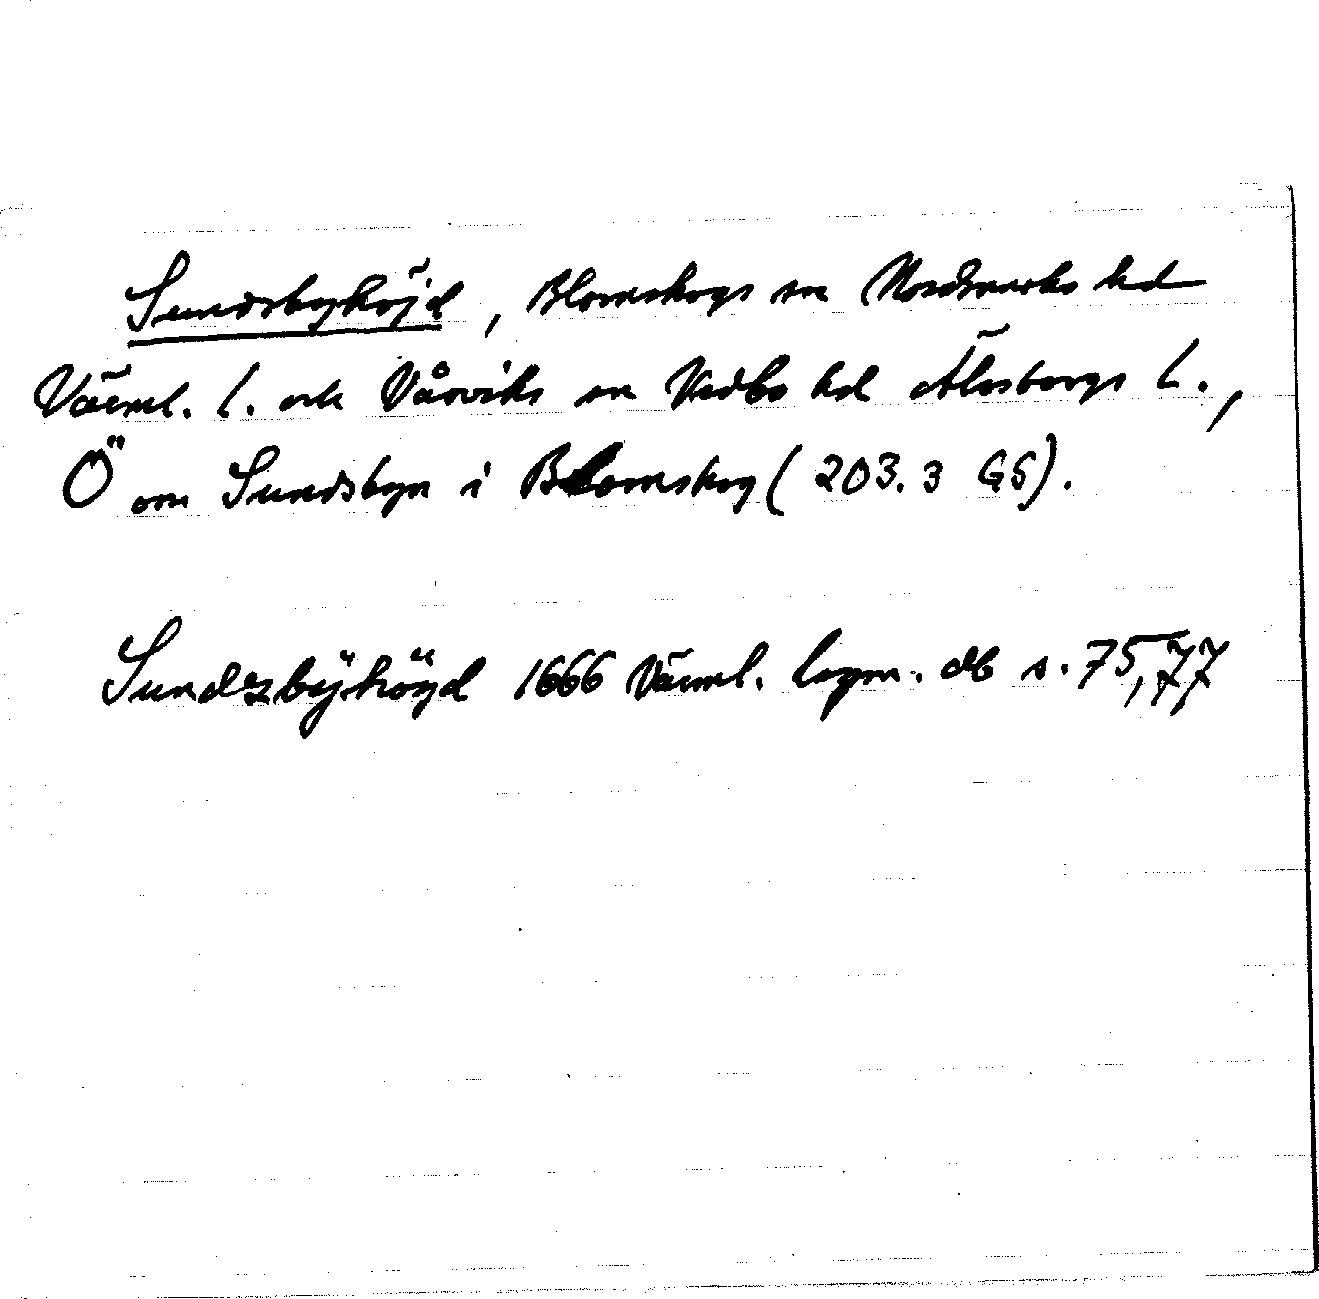 Sundsbyhöjd, Blomskogs sn Nordmarks hd
Värml. l. och Vårviks sn Vedbo hd Älvsborgs l.,
Ö om Sundsbyn i Blomskog (203.3 GS).
Sundzbÿhöÿd 1666 Värml. lagm. db s. 75, 77